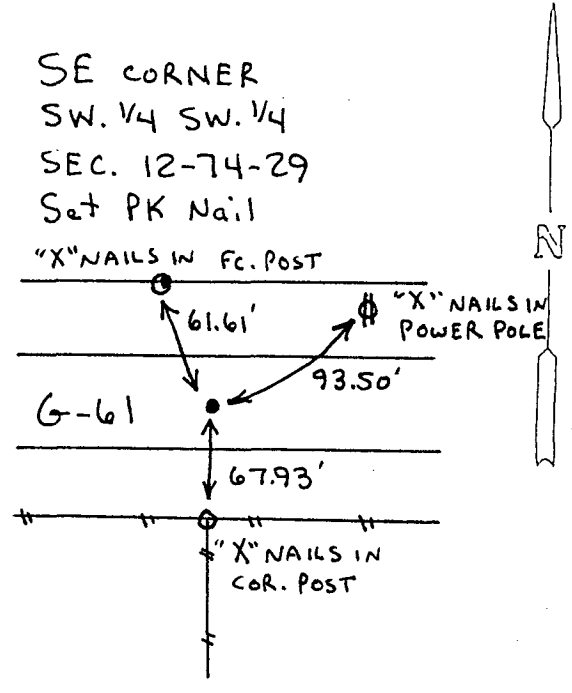 SE CORNER
SW. 1/4 SW. 1/4
SEC. 12-74-29
Set PK Nail
"X" NAILS IN FC. POST
N
"X" NAILS IN
POWER POLE
61.61'
93.50'
G-61
67.93'
"X" NAILS IN
COR. POST